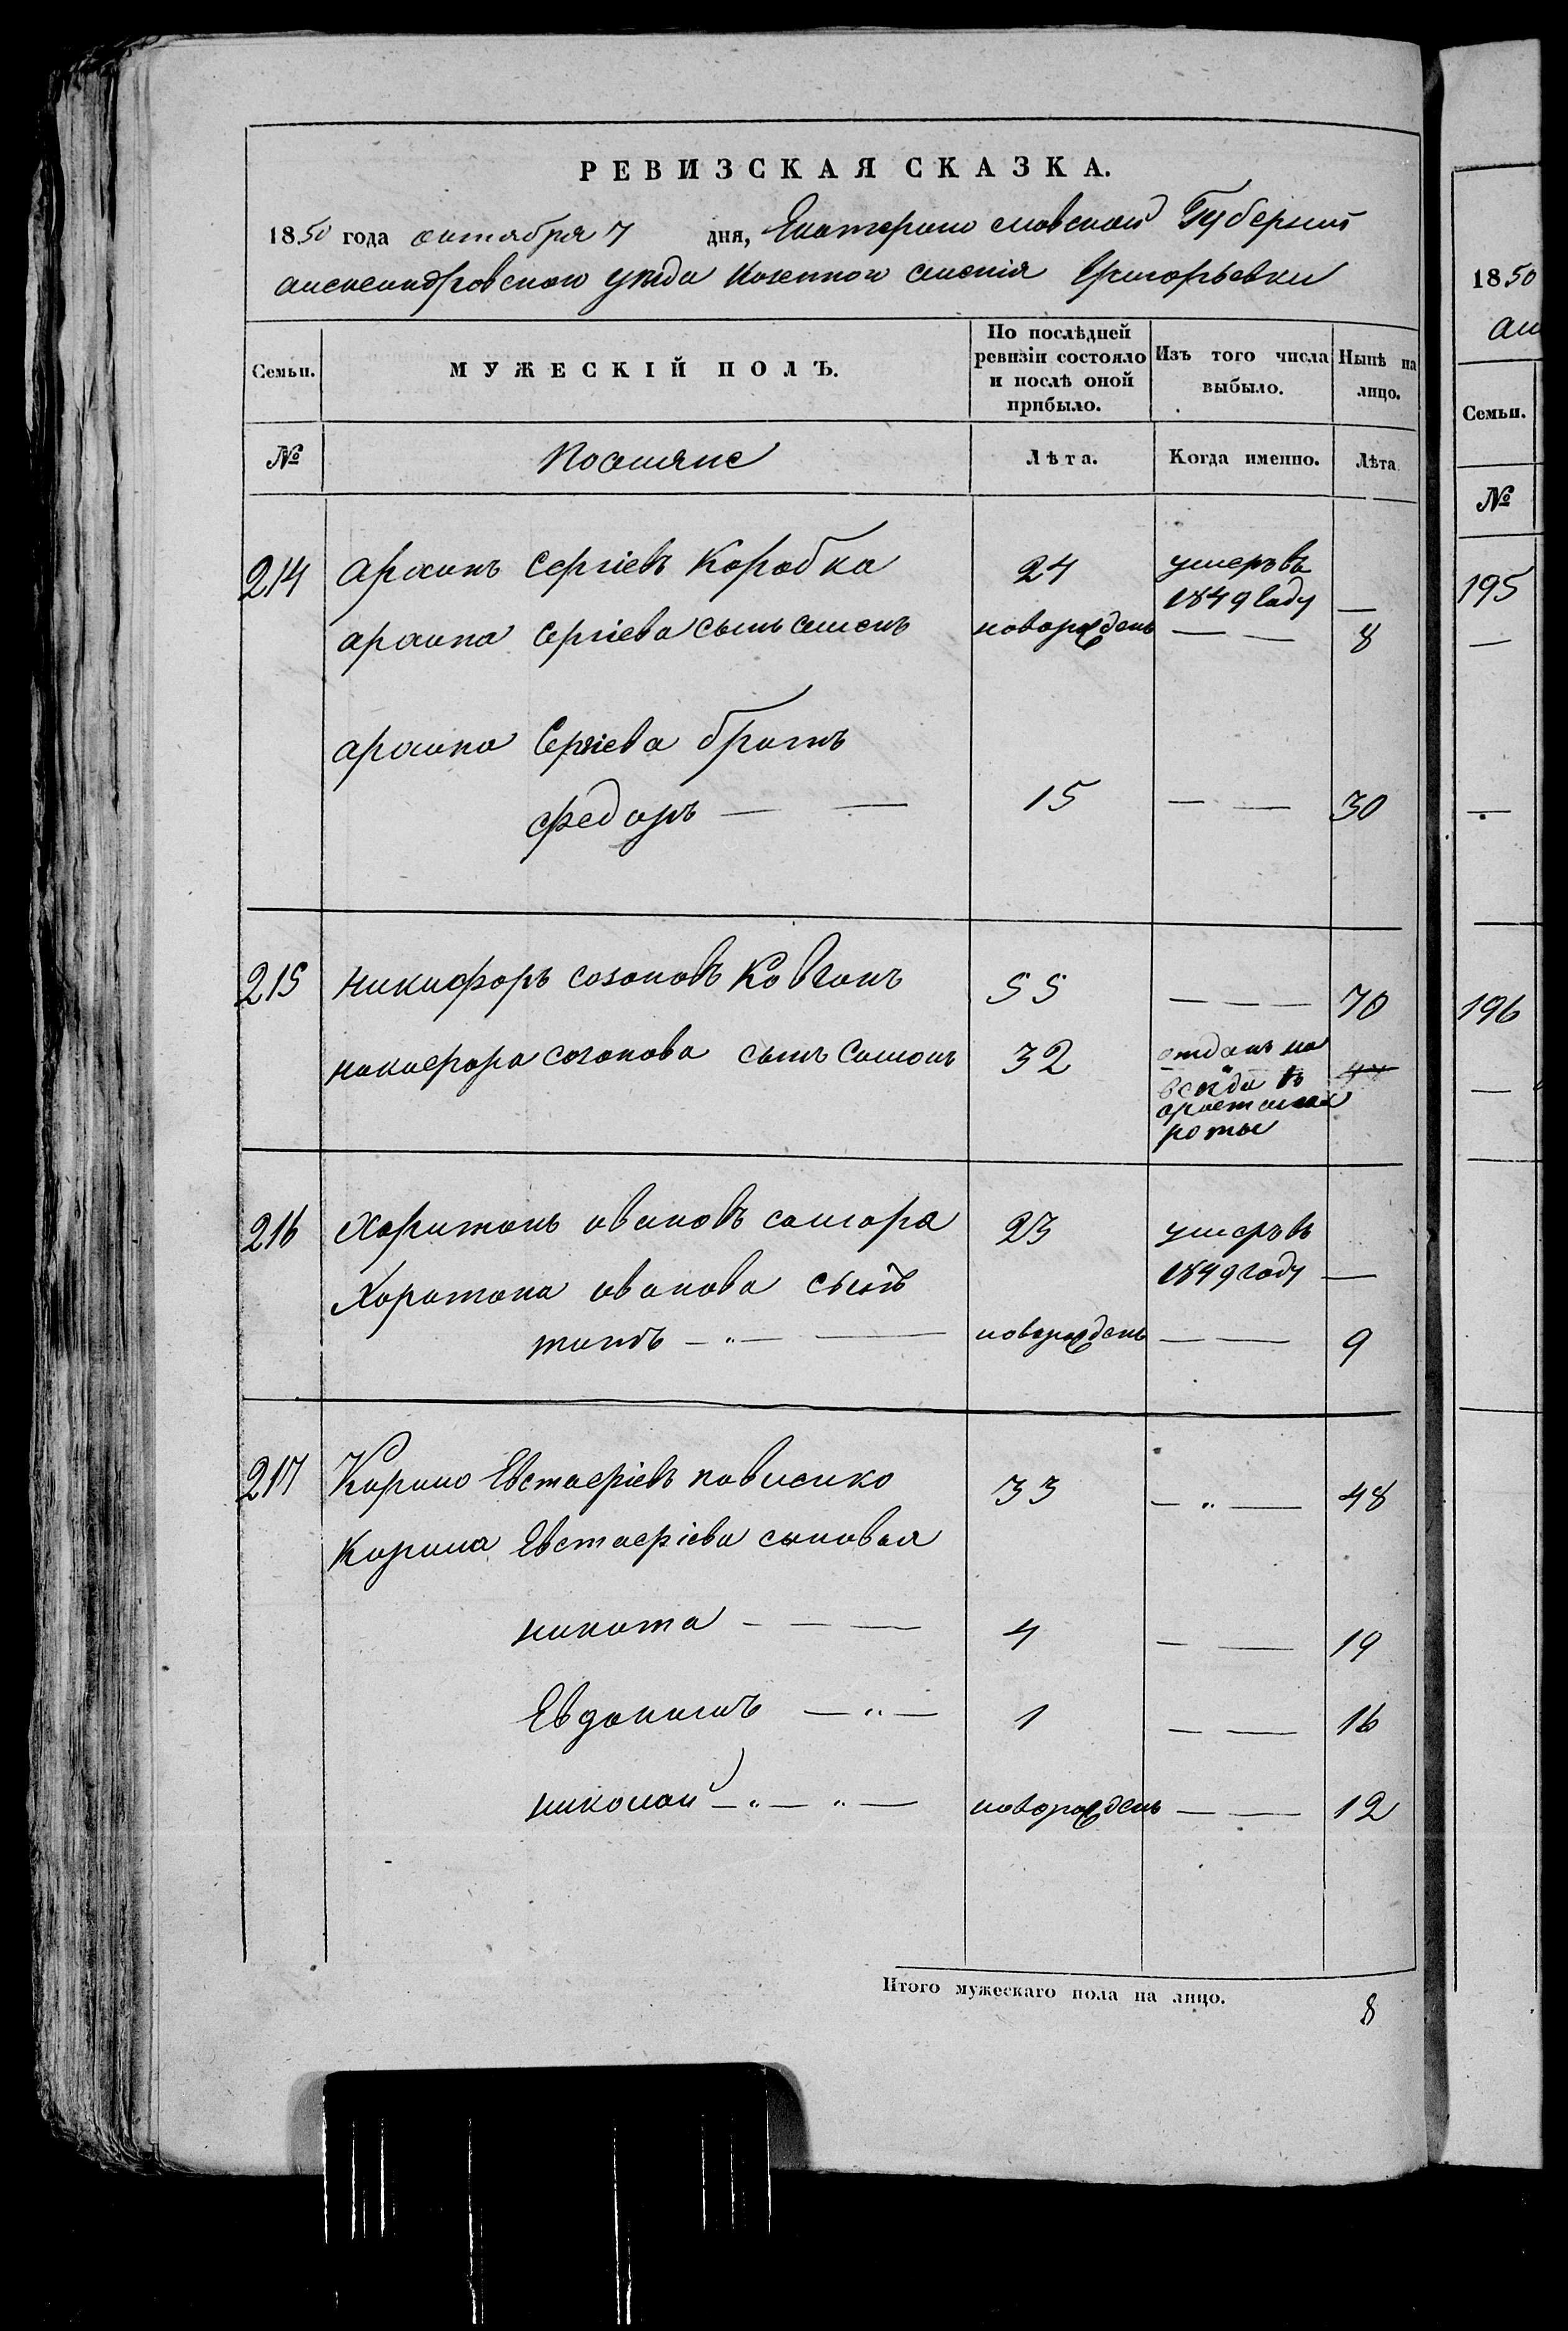 РЕВИЗСКАЯ СКАЗКА.
1850 года октября 7 дня, Екатеринославской Губернiи
александровского уезда казенного селенiя Григорьевки
Семьи. МУЖЕСКІЙ ПОЛЪ. По послѣдней ревизіи состояло и послѣ оной прибыло. Изъ того числа выбыло. Нынѣ на лицо.
№ Поселяне Лѣта. Когда именно. Лѣта
214 Сергіевъ Коробка 24 умеръ въ 1849 году —
Сергіева сынъ Семенъ новорожденъ — — 8
Сергіева братъ
федоръ — — 15 — — 30
215 никифоръ созоновъ Ковганъ 55 — — — 70
никифора созонова сынъ Самонъ 32 отданъ на всегда въ арестанскія роты
216 Харитонъ ивановъ самара 23 умеръ въ 1849 году —
Харитона иванова сынъ
титъ — „ — — новорожденъ — — 9
217 Кирило Евстафіевъ павленко 33 — „ — 48
Кирила Евстафіева сыновья
никита — — — 4 — — 19
Евдокимъ — „ — 1 — — 16
николай — „ — „ — новорожденъ — — 12
Итого мужескаго пола на лицо. 8
1850
Семьи.
№
195
—
—
196
—